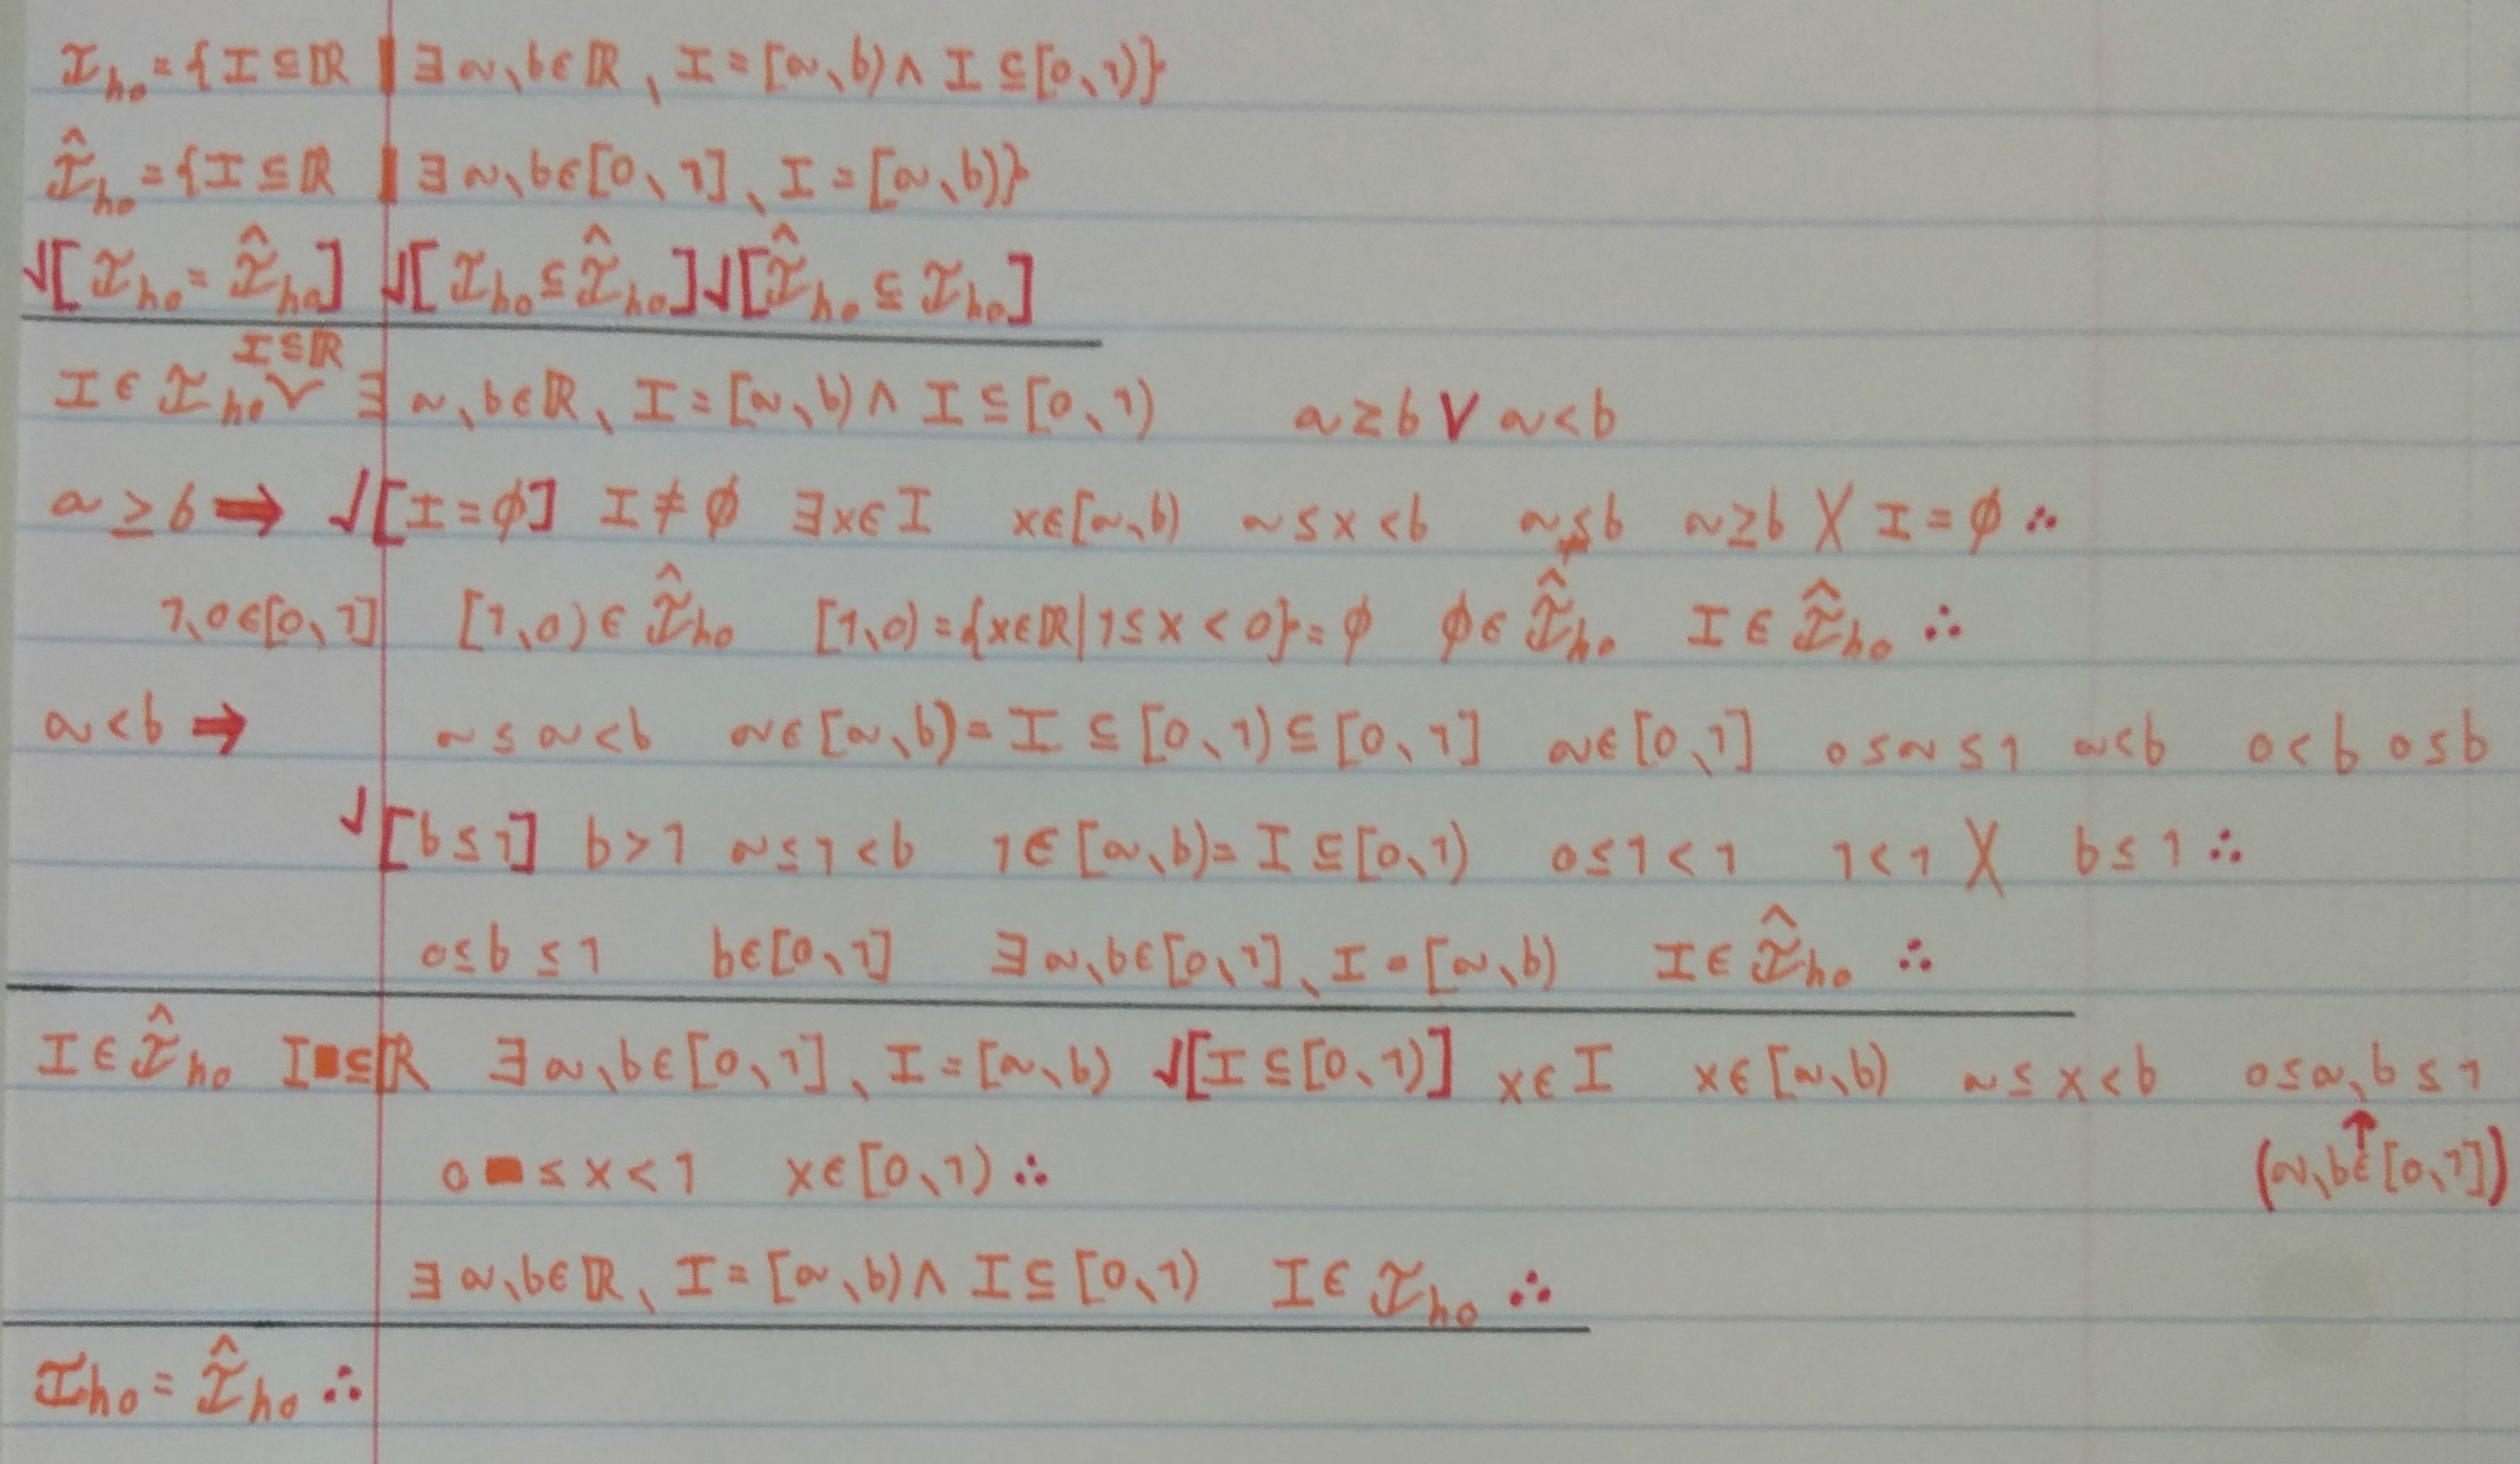 𝓘ₕₒ = {I ⊆ ℝ | ∃ a, b ∈ ℝ, I = [a, b) ∧ I ⊆ [0, 1)}
𝓘̂ₕₒ = {I ⊆ ℝ | ∃ a, b ∈ [0, 1], I = [a, b)}
√[𝓘ₕₒ = 𝓘̂ₕₒ] √[𝓘ₕₒ ⊆ 𝓘̂ₕₒ] √[𝓘̂ₕₒ ⊆ 𝓘ₕₒ]
I ⊆ ℝ
I ∈ 𝓘ₕₒ ∨ ∃ a, b ∈ ℝ, I = [a, b) ∧ I ⊆ [0, 1) a ≥ b ∨ a < b
a ≥ b ⇒ √[I = ϕ] I ≠ ϕ ∃x ∈ I x ∈ [a, b) a ≤ x < b a ≤ b a ≥ b X I = ϕ ∴
1, 0 ∈ [0, 1] [1, 0) ∈ 𝓘̂ₕₒ [1, 0) = {x ∈ ℝ | 1 ≤ x < 0} = ϕ ϕ ∈ 𝓘̂ₕₒ I ∈ 𝓘̂ₕₒ ∴
a < b ⇒ a ≤ a < b a ∈ [a, b) = I ⊆ [0, 1) ⊆ [0, 1] a ∈ [0, 1] 0 ≤ a ≤ 1 a < b 0 < b 0 ≤ b
√[b ≤ 1] b > 1 a ≤ 1 < b 1 ∈ [a, b) = I ⊆ [0, 1) 0 ≤ 1 < 1 1 < 1 X b ≤ 1 ∴
0 ≤ b ≤ 1 b ∈ [0, 1] ∃ a, b ∈ [0, 1], I = [a, b) I ∈ 𝓘̂ₕₒ ∴
I ∈ 𝓘̂ₕₒ I ⊆ ℝ ∃ a, b ∈ [0, 1], I = [a, b) √[I ⊆ [0, 1)] x ∈ I x ∈ [a, b) a ≤ x < b 0 ≤ a, b ≤ 1
0 ≤ x < 1 x ∈ [0, 1) ∴ ↑ (a, b ∈ [0, 1])
∃ a, b ∈ ℝ, I = [a, b) ∧ I ⊆ [0, 1) I ∈ 𝓘ₕₒ ∴
𝓘ₕₒ = 𝓘̂ₕₒ ∴